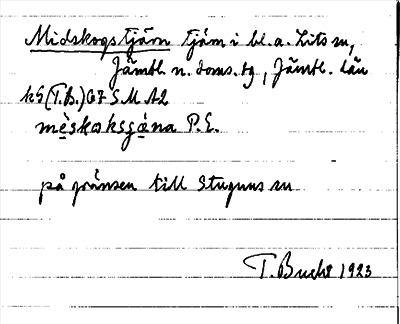 Midskogstjärn tjärn i bl.a. Lits sn,
Jämtl. n. doms. tg, Jämtl. län
kS (T.B.) G7 S M A2
mèskoksgæ̀na P.E.
på gränsen till Stuguns sn
T. Bucht 1923